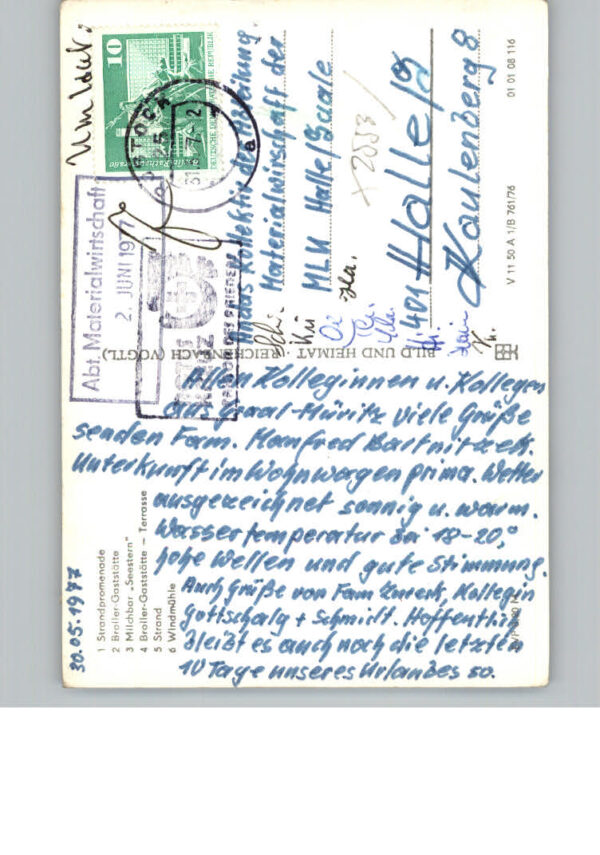 30.05.1977
Allen Kolleginnen u. Kollegen
aus Graal-Müritz viele Grüße
senden Fam. Manfred Bartnitzeck.
Unterkunft im Wohnwagen prima. Wetter
ausgezeichnet sonnig u. warm.
Wassertemperatur bei 18-20°,
hohe Wellen und gute Stimmung.
Auch Grüße von Fam. Zureck, Kollegin
Gottschalg + Schmidt. Hoffentlich
bleibt es auch noch die letzten
10 Tage unseres Urlaubes so.
1 Strandpromenade
2 Broiler-Gaststätte
3 Milchbar „Seestern"
4 Broiler-Gaststätte — Terrasse
5 Strand
6 Windmühle
BILD UND HEIMAT · REICHENBACH (VOGTL)
V 11 50 A 1/B 761/76
01 01 08 116
Um lauf.
10
DEUTSCHE DEMOKRATISCHE REPUBLIK
Abt. Materialwirtschaft
2. JUNI 1977
An das Kollektiv der Abteilung
Materialwirtschaft der
MLU Halle/Saale
401 Halle/S
Kaulenberg 8